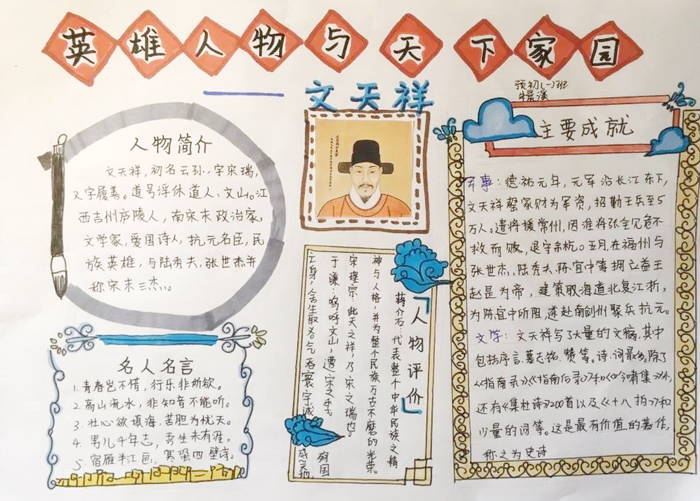 英雄人物与天下家园
预初(一)班
文天祥
人物简介
文天祥,初名云孙,字宋瑞,
又字履善。道号浮休道人、文山。江
西吉州庐陵人,南宋末政治家,
文学家,爱国诗人,抗元名臣,民
族英雄,与陆秀夫、张世杰并
称宋末三杰。
名人名言
1.青春岂不惜,行乐非所欲。
2.高山流水,非知音不能听。
3.壮心欲填海,苦胆为忧天。
4.男儿千年志,吾生未有涯。
5.宿雁半江画,寒蛩四壁诗。
人物评价
蒋介石:代表整个中华民族之精
神与人格,并为整个民族万古不磨的光荣。
宋理宗:此天之祥,乃宋之瑞也。
于谦:呜呼文山,遭宋之季。
殉国
亡身,舍生取义。气吞寰宇,诚感天地
主要成就
军事:德祐元年,元军沿长江东下,
文天祥罄家财为军资,招勤王兵至5
万人,遣将援常州,因淮将张全见危不
救而败,退守余杭。五月,在福州与
张世杰、陆秀夫、陈宜中等拥立益王
赵昰为帝,建策取海道北复江浙,
为陈宜中所阻,遂赴南剑州聚兵抗元。
文学:文天祥写了大量的文稿,其中
包括序言、墓志铭、赞等,诗、词最多,除了
《指南录》《指南后录》和《吟啸集》外,
还有《集杜诗》200首以及《十八拍》和
少量的词等。这是最有价值的著作,
称之为史诗